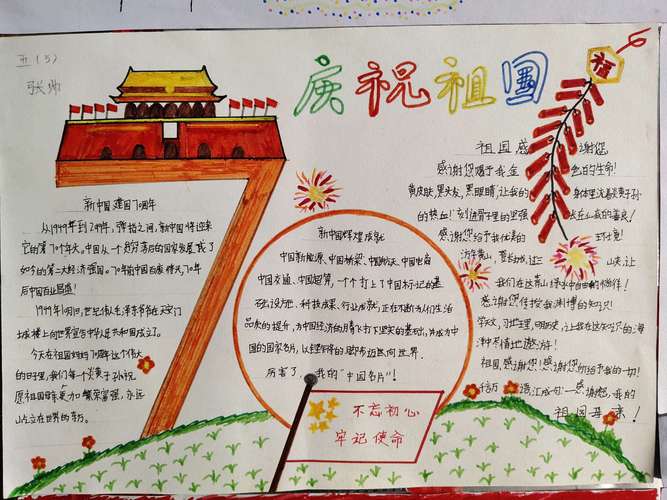 五(5)
庆祝祖国
福
新中国建国70周年
从1949年到2019年，弹指之间，新中国将迎来
它的第70个年头。中国从一个贫穷落后的国家发展成了
如今的第二大经济强国。70年前中国百废待兴，70年
后中国百业昌盛！
1949年10月1日，世纪伟人毛泽东爷爷在天安门
城楼上向世界宣告中华人民共和国成立了。
今天在祖国妈妈70周年这个伟大
的日子里，我们每一个炎黄子孙祝
愿祖国母亲更加繁荣富强，永远
屹立在世界的东方。
新中国辉煌成就
中国新能源、中国桥梁、中国航天、中国电商
中国交通、中国超算，一个个打上了中国标记的基
础设方地、科技成果、行业成就，正在不断为人们生活
品质的提升，为中国经济的腾飞打下坚实的基础，并成为中
国的国家名片，以铿锵的脚步迈向世界。
厉害了，我的"中国名片"！
不忘初心
牢记使命
祖国，感谢您
感谢您赐予我金色的生命！
黄皮肤，黑头发，黑眼睛，让我的身体里流着炎黄子孙
的热血！刻进骨子里的坚强
感谢您给予我优美的环境！
让我们在这青山绿水中自由的徜徉！
感谢您传授我渊博的知识！
学天文，习地理，明历史，让我在这知识的海
洋中尽情地遨游！
祖国，感谢您！感谢您所给予我的一切！
千言万语汇成句：感谢您，我的
祖国母亲！